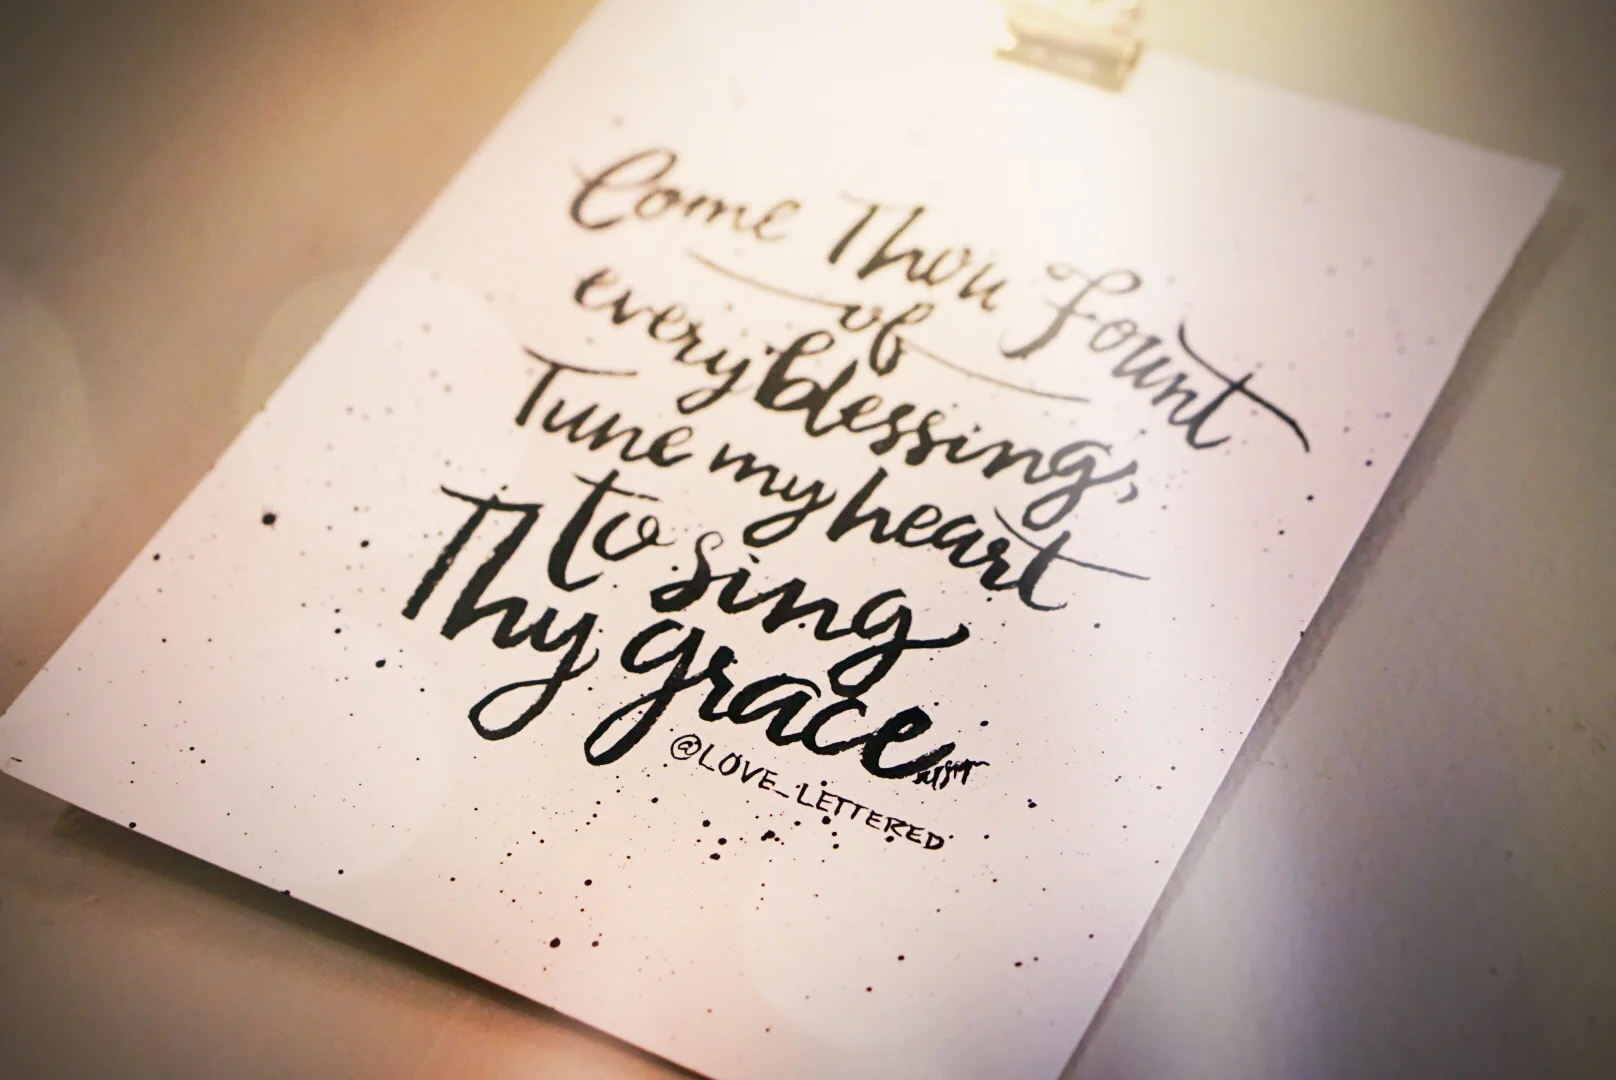 Come Thou Fount
of
every blessing,
Tune my heart
to sing
Thy grace
@LOVE_LETTERED